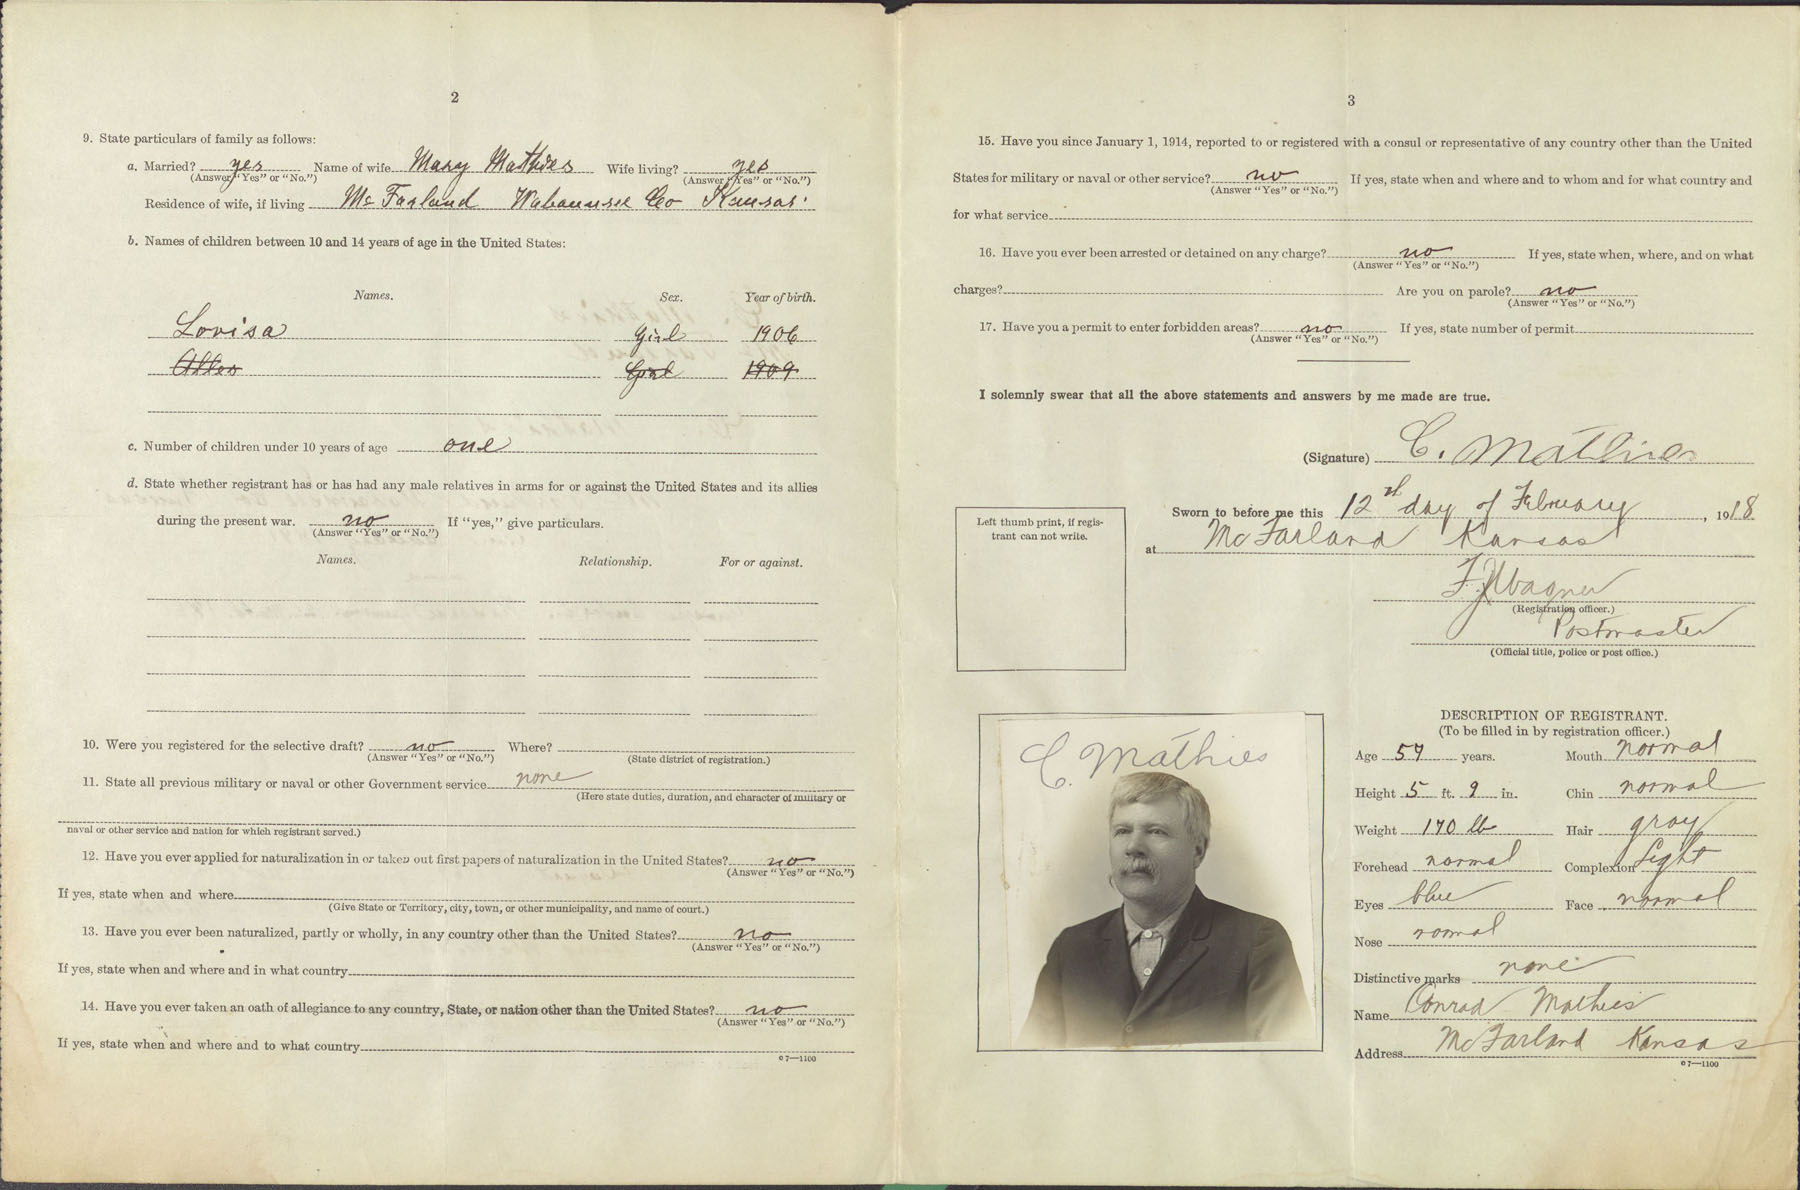 2
9. State particulars of family as follows:
a. Married? yes Name of wife Mary Mathies Wife living? yes
(Answer "Yes" or "No.") (Answer "Yes" or "No.")
Residence of wife, if living McFarland Wabaunsee Co Kansas
b. Names of children between 10 and 14 years of age in the United States:
Names. Sex. Year of birth.
Lovisa girl 1906
Girl 1909
c. Number of children under 10 years of age one
d. State whether registrant has or has had any male relatives in arms for or against the United States and its allies
during the present war. no If "yes," give particulars.
(Answer "Yes" or "No.")
Names. Relationship. For or against.
10. Were you registered for the selective draft? no Where?
(Answer "Yes" or "No.") (State district of registration.)
11. State all previous military or naval or other Government service none
(Here state duties, duration, and character of military or
naval or other service and nation for which registrant served.)
12. Have you ever applied for naturalization in or taken out first papers of naturalization in the United States? no
(Answer "Yes" or "No.")
If yes, state when and where
(Give State or Territory, city, town, or other municipality, and name of court.)
13. Have you ever been naturalized, partly or wholly, in any country other than the United States? no
(Answer "Yes" or "No.")
If yes, state when and where and in what country
14. Have you ever taken an oath of allegiance to any country, State, or nation other than the United States? no
(Answer "Yes" or "No.")
If yes, state when and where and to what country
c7—1100
3
15. Have you since January 1, 1914, reported to or registered with a consul or representative of any country other than the United
States for military or naval or other service? no If yes, state when and where and to whom and for what country and
(Answer "Yes" or "No.")
for what service
16. Have you ever been arrested or detained on any charge? no If yes, state when, where, and on what
(Answer "Yes" or "No.")
charges? Are you on parole? no
(Answer "Yes" or "No.")
17. Have you a permit to enter forbidden areas? no If yes, state number of permit
(Answer "Yes" or "No.")
I solemnly swear that all the above statements and answers by me made are true.
(Signature) C. Mathies
Left thumb print, if regis-
trant can not write.
Sworn to before me this 12th day of February, 1918
at McFarland Kansas
F. J. Wagner
(Registration officer.)
Postmaster
(Official title, police or post office.)
C. Mathies
DESCRIPTION OF REGISTRANT.
(To be filled in by registration officer.)
Age 57 years. Mouth normal
Height 5 ft. 9 in. Chin normal
Weight 170 lb Hair gray
Forehead normal Complexion Light
Eyes blue Face normal
Nose normal
Distinctive marks none
Name Conrad Mathies
Address McFarland Kansas
c7—1100